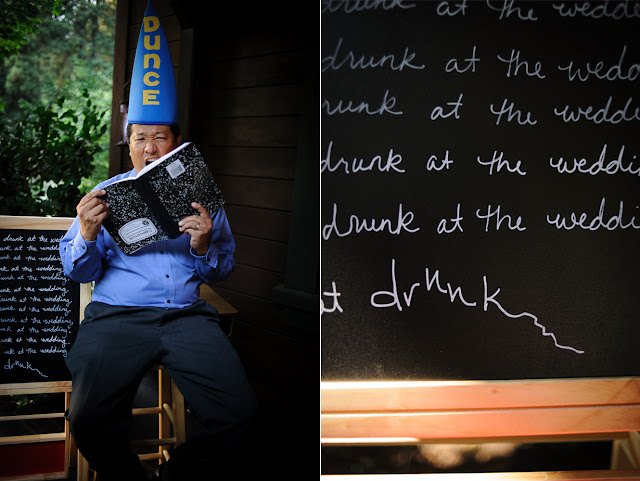 DUNCE
drunk at the
drunk at the wedding.
drunk at the wedding.
drunk at the wedding.
drunk at the wedding.
drunk at the wedding.
drunk at the wedding.
unk at the wedding.
unk at the wedding.
unk at the wedding.
drunk
drunk at the wedding
drunk at the wedd
runk at the weddi
drunk at the wedding
drunk at the wedding
drunk